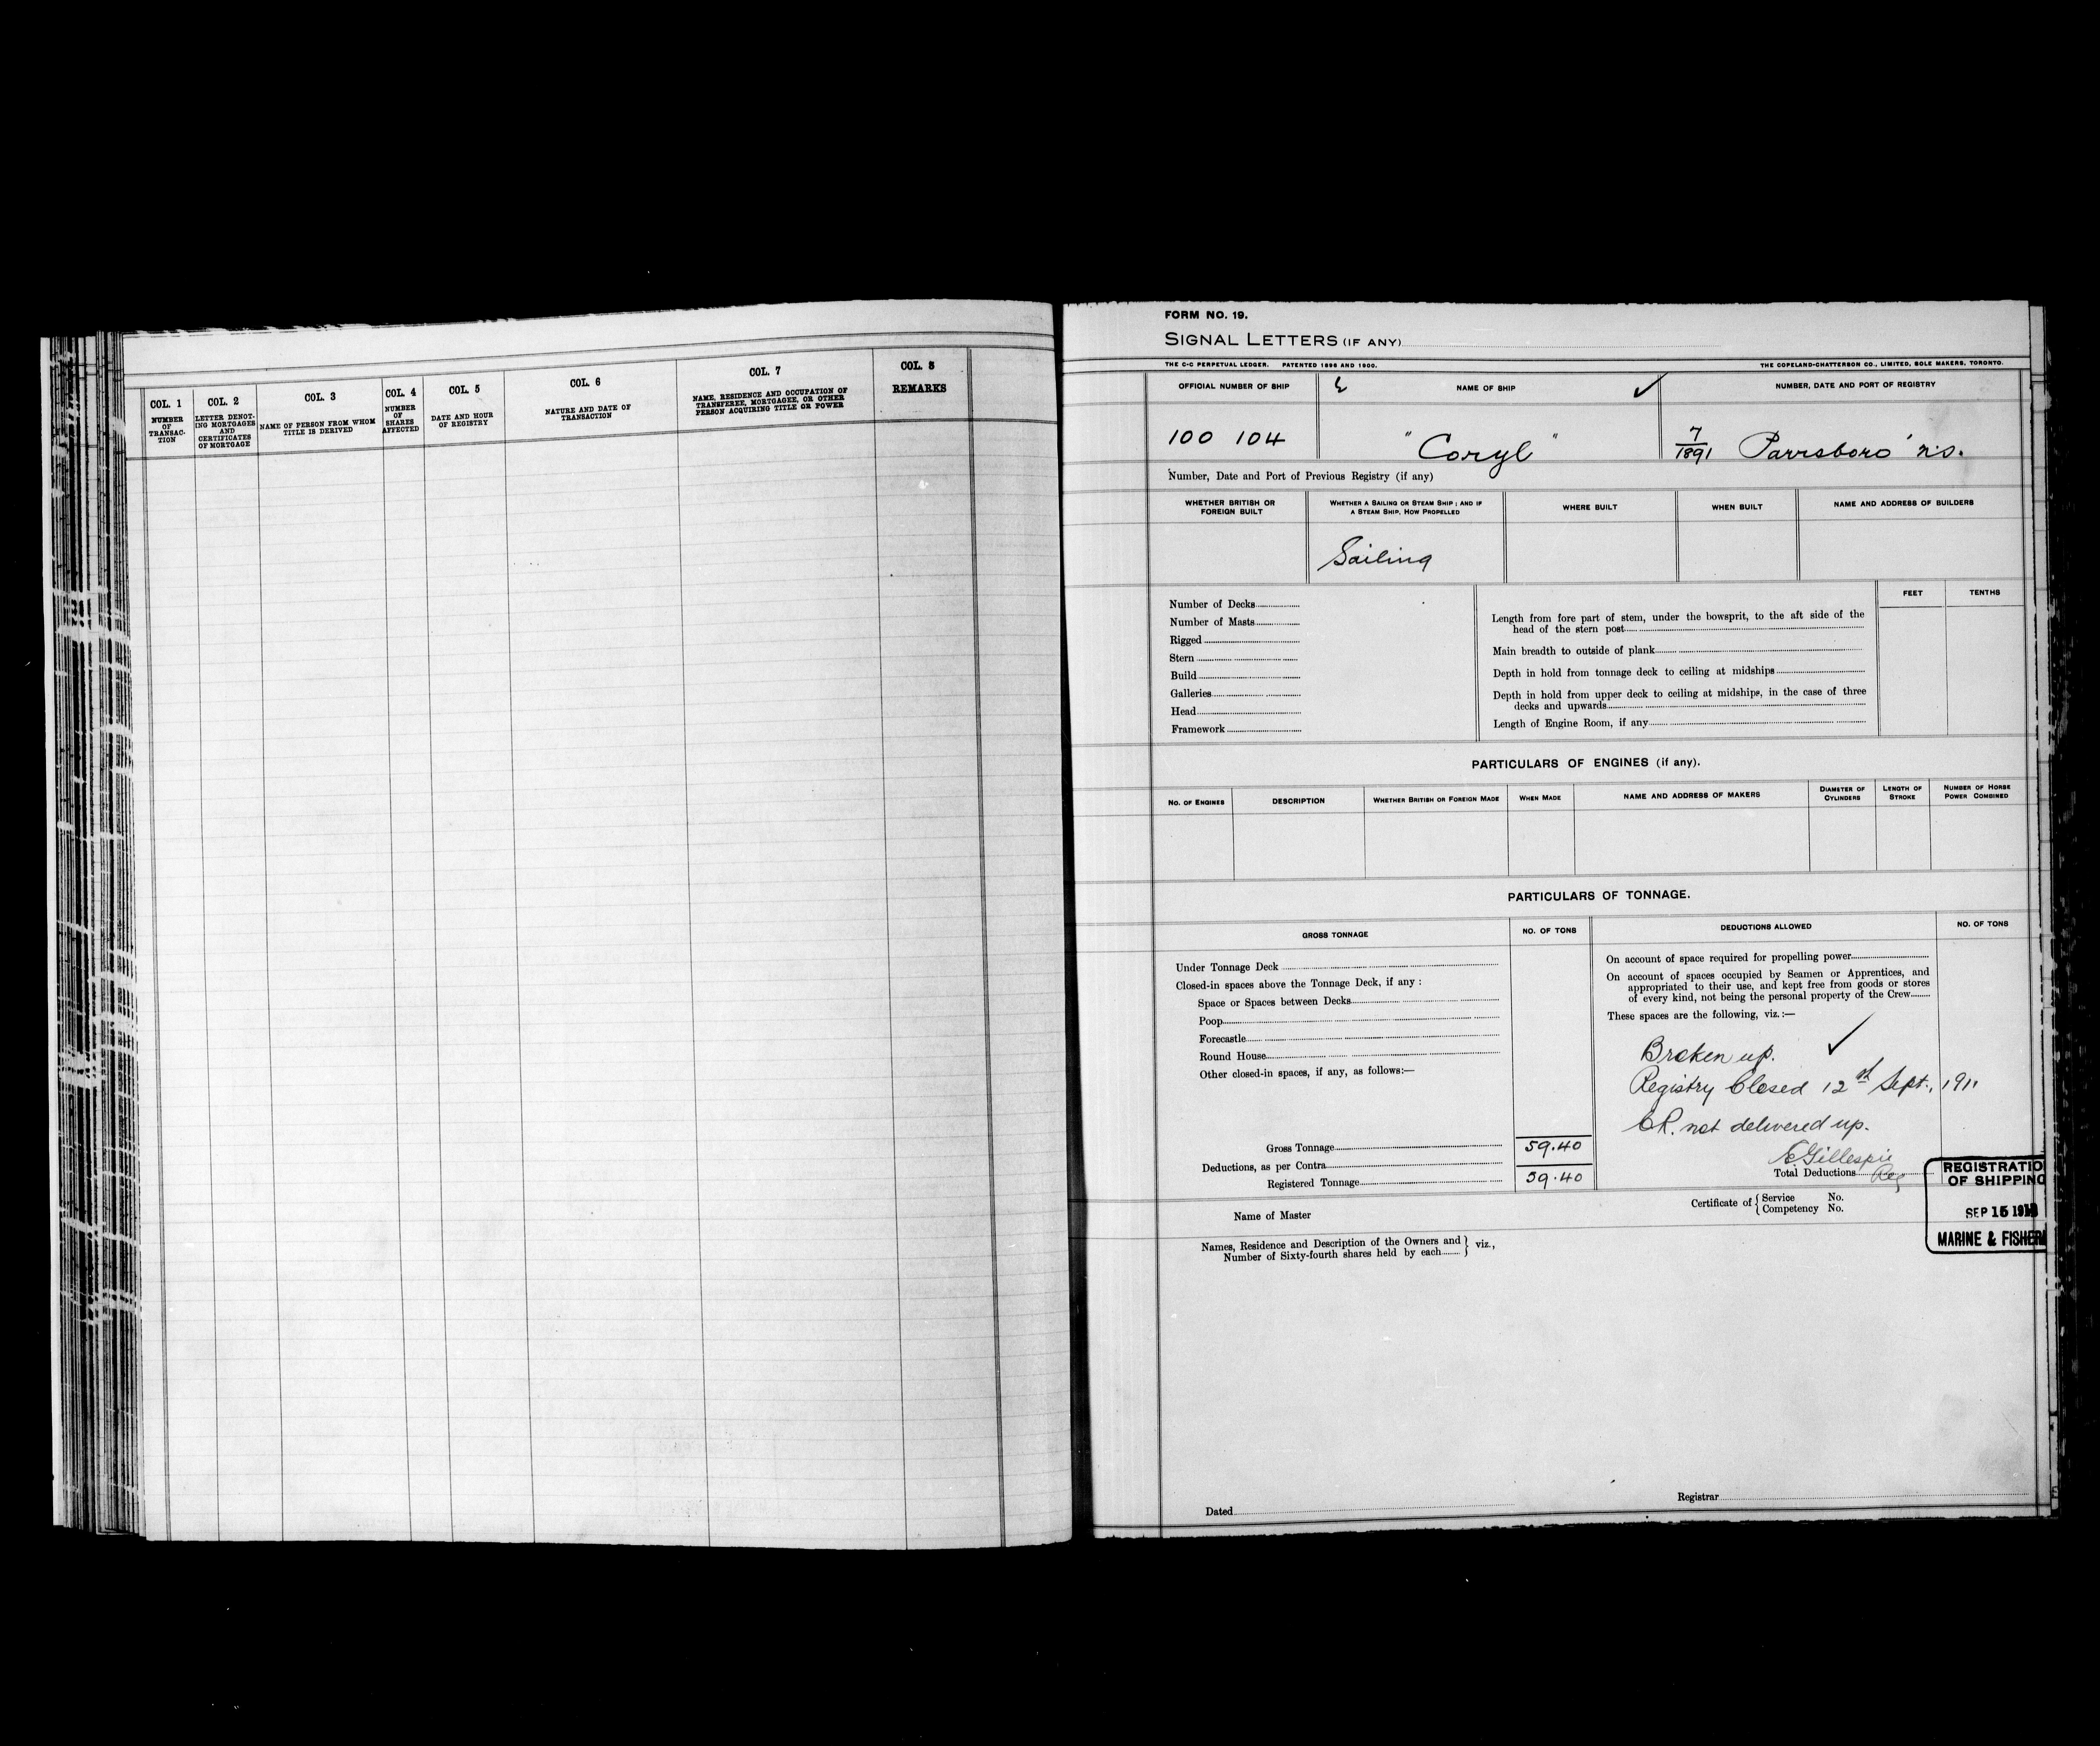 COL. 1
NUMBER
OF
TRANSAC-
TION
COL. 2
LETTER DENOT-
ING MORTGAGES
AND
CERTIFICATES
OF MORTGAGE
COL. 3
NAME OF PERSON FROM WHOM
TITLE IS DERIVED
COL. 4
NUMBER
OF
SHARES
AFFECTED
COL. 5
DATE AND HOUR
OF REGISTRY
COL. 6
NATURE AND DATE OF
TRANSACTION
COL. 7
NAME, RESIDENCE AND OCCUPATION OF
TRANSFEREE, MORTGAGEE, OR OTHER
PERSON ACQUIRING TITLE OR POWER
COL. 8
REMARKS
FORM NO. 19.
SIGNAL LETTERS (IF ANY)
THE C-C PERPETUAL LEDGER. PATENTED 1896 AND 1900.
THE COPELAND-CHATTERSON CO., LIMITED, SOLE MAKERS, TORONTO.
OFFICIAL NUMBER OF SHIP
NAME OF SHIP
NUMBER, DATE AND PORT OF REGISTRY
100 104
"Coryl"
7/1891 Parrsboro' N.S.
Number, Date and Port of Previous Registry (if any)
WHETHER BRITISH OR
FOREIGN BUILT
WHETHER A SAILING OR STEAM SHIP; AND IF
A STEAM SHIP, HOW PROPELLED
WHERE BUILT
WHEN BUILT
NAME AND ADDRESS OF BUILDERS
Sailing
Number of Decks
Number of Masts
Rigged
Stern
Build
Galleries
Head
Framework
FEET
TENTHS
Length from fore part of stem, under the bowsprit, to the aft side of the
head of the stern post
Main breadth to outside of plank
Depth in hold from tonnage deck to ceiling at midships
Depth in hold from upper deck to ceiling at midships, in the case of three
decks and upwards
Length of Engine Room, if any
PARTICULARS OF ENGINES (if any).
NO. OF ENGINES
DESCRIPTION
WHETHER BRITISH OR FOREIGN MADE
WHEN MADE
NAME AND ADDRESS OF MAKERS
DIAMETER OF
CYLINDERS
LENGTH OF
STROKE
NUMBER OF HORSE
POWER COMBINED
PARTICULARS OF TONNAGE.
GROSS TONNAGE
NO. OF TONS
DEDUCTIONS ALLOWED
NO. OF TONS
Under Tonnage Deck
Closed-in spaces above the Tonnage Deck, if any :
Space or Spaces between Decks
Poop
Forecastle
Round House
Other closed-in spaces, if any, as follows:—
Gross Tonnage 59.40
Deductions, as per Contra
Registered Tonnage 59.40
On account of space required for propelling power
On account of spaces occupied by Seamen or Apprentices, and
appropriated to their use, and kept free from goods or stores
of every kind, not being the personal property of the Crew
These spaces are the following, viz.:—
Broken up.
Registry Closed 12th Sept., 1911
C.R. not delivered up.
E Gillespie
Reg
Total Deductions
REGISTRATIO
OF SHIPPING
SEP 15 191
MARINE & FISHER
Name of Master
Certificate of { Service No.
Competency No.
Names, Residence and Description of the Owners and
Number of Sixty-fourth shares held by each } viz.,
Dated
Registrar